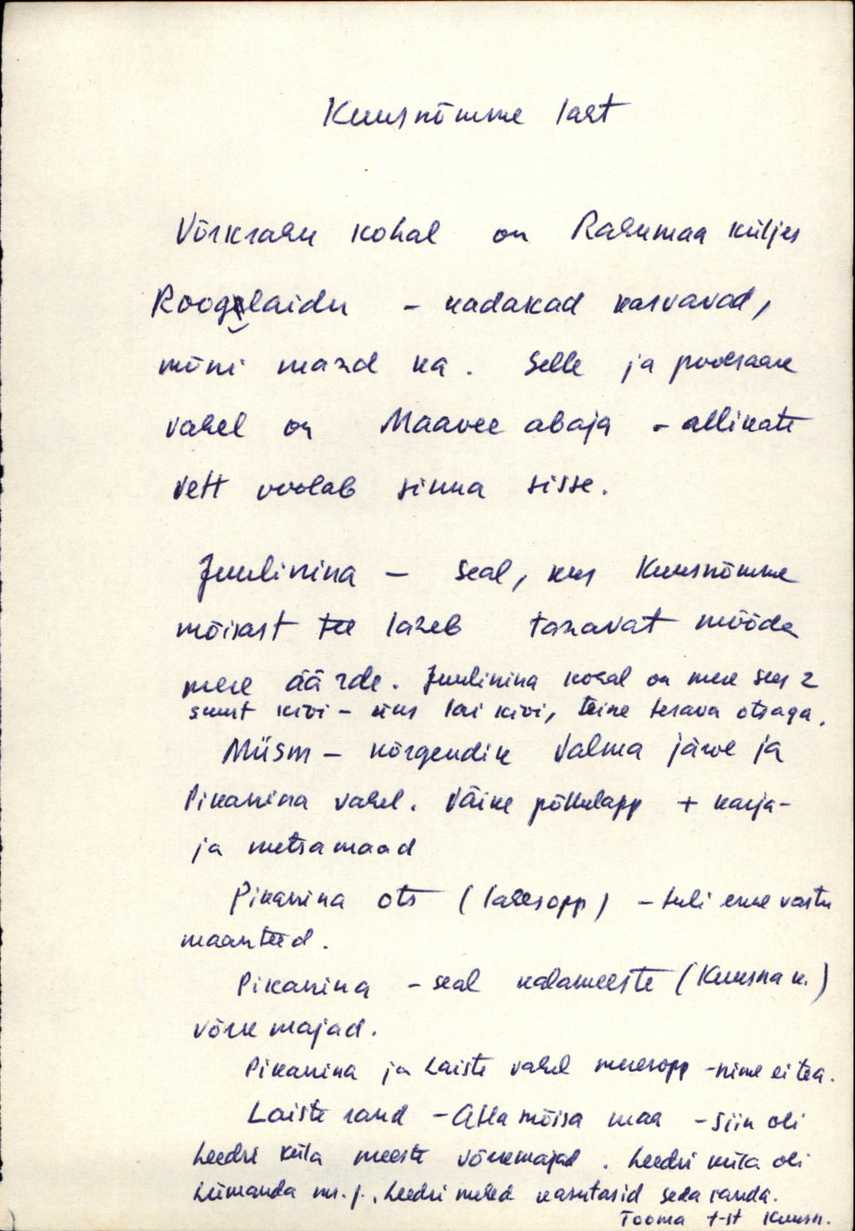 Kuusnõmme laht
Võrkrahu kohal on Rahumaa küljes
Roogelaidu - kadakad kasvavad,
mõni mänd ka. Selle ja poolsaare
vahel on Maavee abaja - allikate
vett voolab sinna sisse.
Juulinina - seal, kus Kuusnõmme
mõisast tee läheb tänavat mööda
mere äärde. Juulinina kohal on mere sees 2
suurt kivi - üks lai kivi, teine terava otsaga.
Müsm - nõrgendik Valma järve ja
Pikanina vahel. Väike põllulapp + karja-
ja metsamaad
Pikanina ots (lahesopp) - tuli enne vastu
maanteed.
Pikanina - seal kalameeste (Kuusna k.)
võrkmajad.
Pikanina ja Laiste vahel meresopp - nime ei tea.
Laiste rand - Atla mõisa maa - siin oli
Leedri küla meeste võrkemajad. Leedri küla oli
Lümanda mõ. j., Leedri mehed kasutasid seda randa.
Tooma t-st Kuusn.